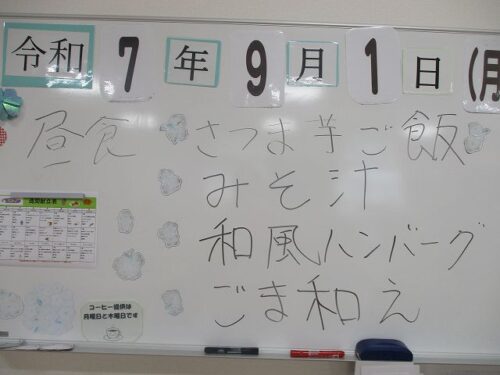 令和7年9月1日(月
昼食 さつま芋ご飯
みそ汁
和風ハンバーグ
ごま和え
週間献立表
コーヒー提供は
月曜日と木曜日です